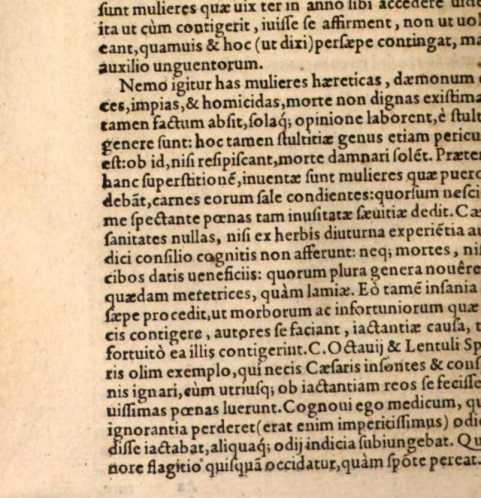 sunt mulieres quæ uix ter in anno sibi accedere
ita ut cùm contigerit, iuisse se affirment, non ut uol
eant, quamuis & hoc (ut dixi) persæpe contingat, ma
auxilio unguentorum.
Nemo igitur has mulieres hæreticas, dæmonum
ces, impias, & homicidas, morte non dignas existima
tamen factum absit, solaq; opinione laborent, è stult
genere sunt: hoc tamen stultitiæ genus etiam pericu
est: ob id, nisi resipiscant, morte damnari solẽt. Præter
hanc superstitionẽ, inuentæ sunt mulieres quæ puero
debãt, carnes eorum sale condientes: quorsum nesci
me spectante pœnas tam inusitatæ sæuitiæ dedit. Cæ
sanitates nullas, nisi ex herbis diuturna experiẽtia au
dici consilio cognitis non afferunt: neq; mortes, nis
cibos datis ueneficiis: quorum plura genera nouêre
quædam meretrices, quàm lamiæ. Eò tamẽ insania
sæpe procedit, ut morborum ac infortuniorum quæ
cis contigere, autores se faciant, iactantiæ causa, t
fortuitò ea illis contigerint. C. Octauij & Lentuli Sp
ris olim exemplo, qui necis Cæsaris insontes & cons
nis ignari, cùm utriusq; ob iactantiam reos se fecisse
uissimas pœnas luerunt. Cognoui ego medicum, qu
ignorantia perderet (erat enim imperitissimus) odio
disse iactabat, aliquaq́; odij indicia subiungebat. Qu
nore flagitio quisquã occidatur, quàm spõte pereat.